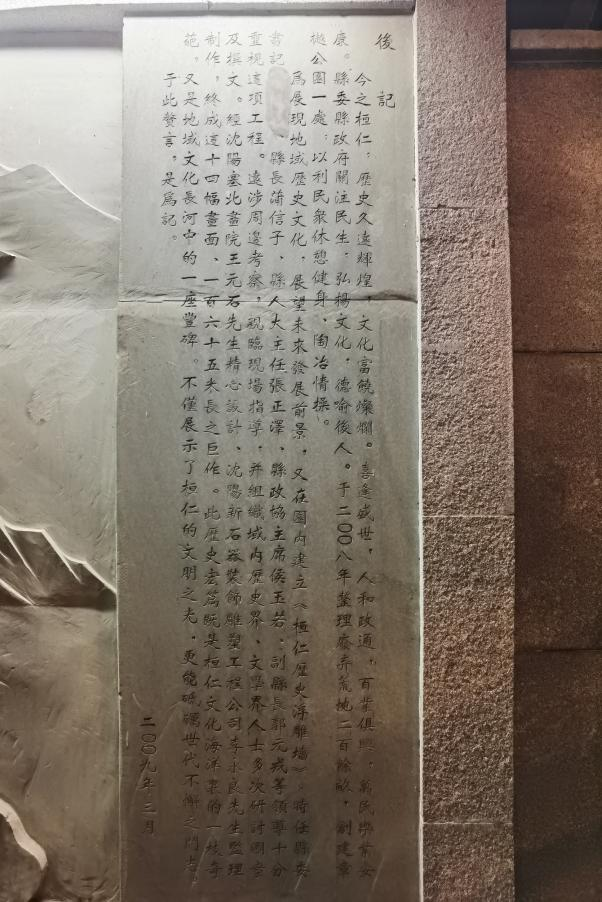 後記
今之桓仁:歷史久遠輝煌,文化富饒燦爛。喜逢盛世,人和政通,百業俱興,萬民樂業安
康。縣委縣政府關注民生,弘揚文化,德喻後人。于二〇〇八年整理廢弃荒地二百餘畝,創建章
樾公園一處:以利民衆休憩健身、陶冶情操。
爲展現地域歷史文化,展望未來發展前景,又在園内建立《桓仁歷史浮雕墻》。時任縣委
書記、縣長蔳信子、縣人大主任張正澤、縣政協主席侯玉若、副縣長郭元戎等領導十分
重視這項工程。遠涉周邊考察,親臨現場指導,并組織域内歷史界、文學界人士多次研討圖
及撰文。經沈陽塞北畫院王元石先生精心設計、沈陽新石器裝飾雕塑工程公司李永良先生監理
制作,終成這十四幅畫面、一百六十五米長之巨作。此歷史宏篇既是桓仁文化海洋裏的一枝奇
葩,又是地域文化長河中的一座豐碑。不僅展示了桓仁的文明之光,更能砥礪世代不懈之鬥志。
于此贅言,是爲記。
二〇〇九年三月